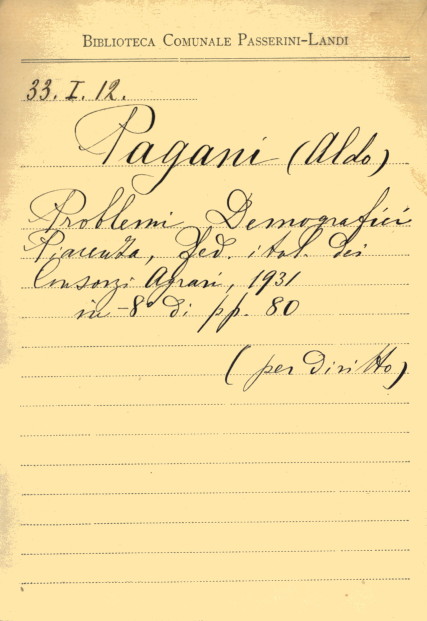 BIBLIOTECA COMUNALE PASSERINI-LANDI
33. I. 12.
Pagani (Aldo)
Problemi Demografici
Piacenza, Fed. ital. dei
Consorzi Agrari, 1931
in -8° di pp. 80
(per diritto)